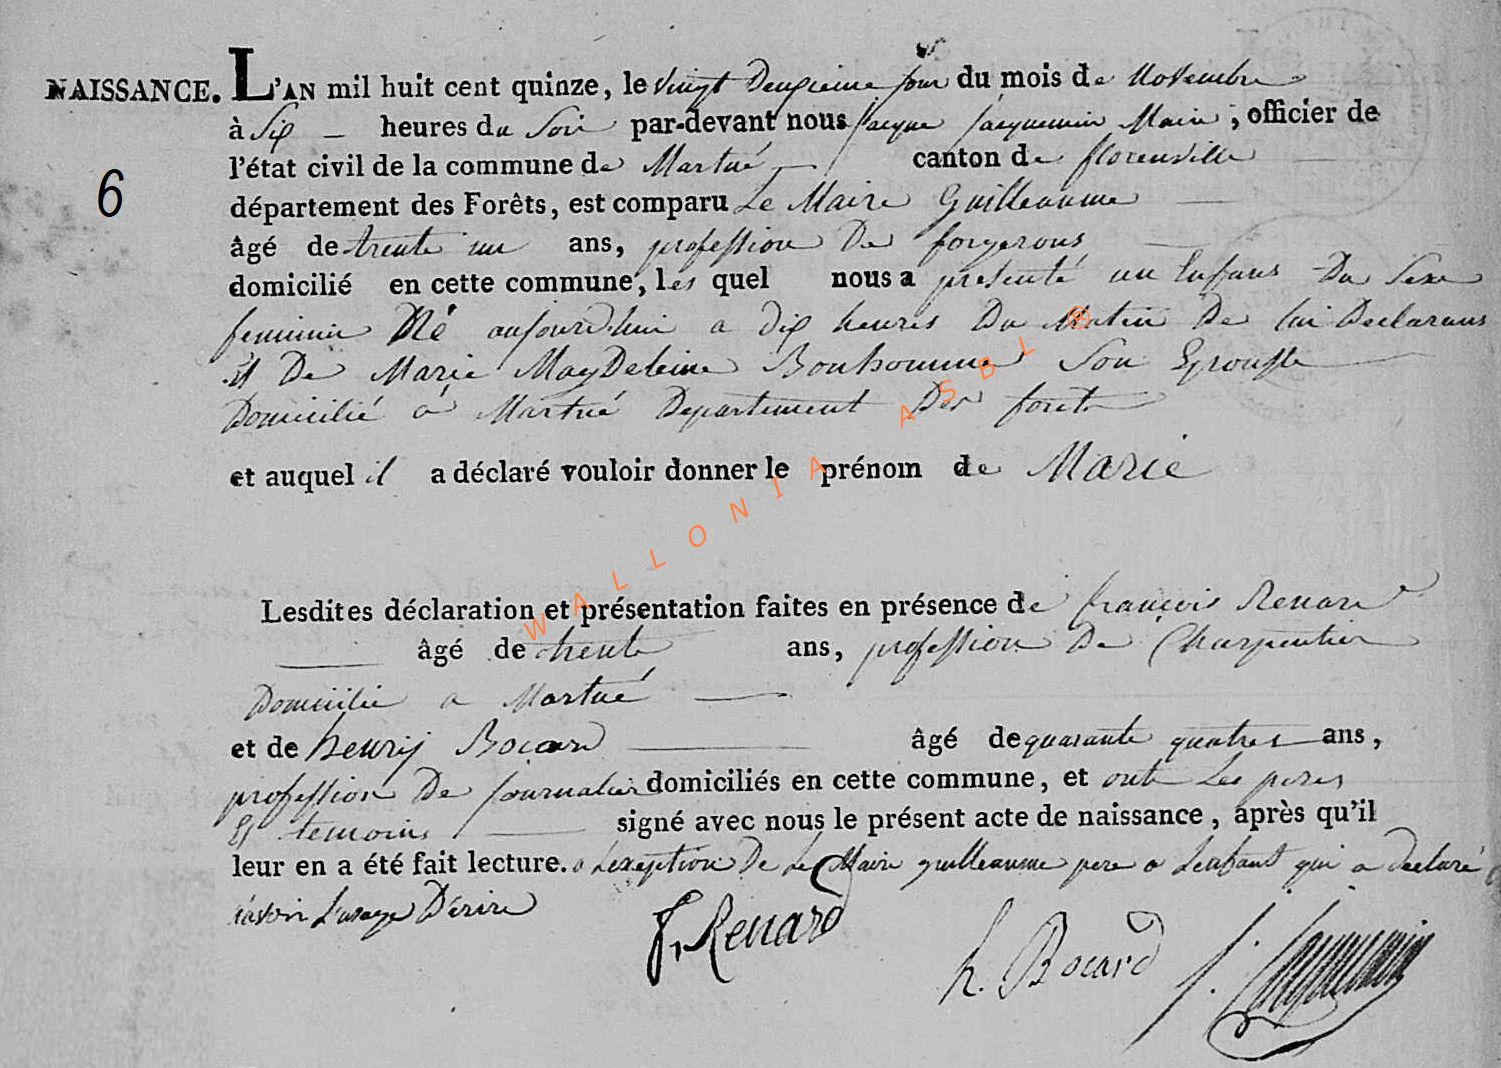 NAISSANCE. L'AN mil huit cent quinze, le vingt Deuxieme jour du mois de Novembre
à Six heures du Soir par-devant nous Jacque Jacquemin Maire, officier de
l'état civil de la commune de Martué canton de florenville
6
département des Forêts, est comparu Le Maire Guilleaume
âgé de trente un ans, profession De forgerons
domicilié en cette commune, lesquel nous a presenté un Enfans Du Sexe
feminin Né aujourd'hui a dix heures Du Matin De lui Declarans
et De Marie MagDeleine Bonhomme Son Epousse
Domicilié á Martué Departement Des foret
et auquel il a déclaré vouloir donner le prénom de Marie
Lesdites déclaration et présentation faites en présence de francois Renard
âgé de trente ans, profession De Charpentier
Domicilié a Martué
et de henrij Bocard âgé de quarante quatres ans,
profession De Journalier domiciliés en cette commune, et ont Les peres
Et temoins signé avec nous le présent acte de naissance, après qu'il
leur en a été fait lecture. a Lexeption De Le Maire guilleaume pere a Lenfant qui a declaré
L'usage D'ecrire
f. Renard
h. Bocard J. Jacquemin
WALLONIA ASBL ®